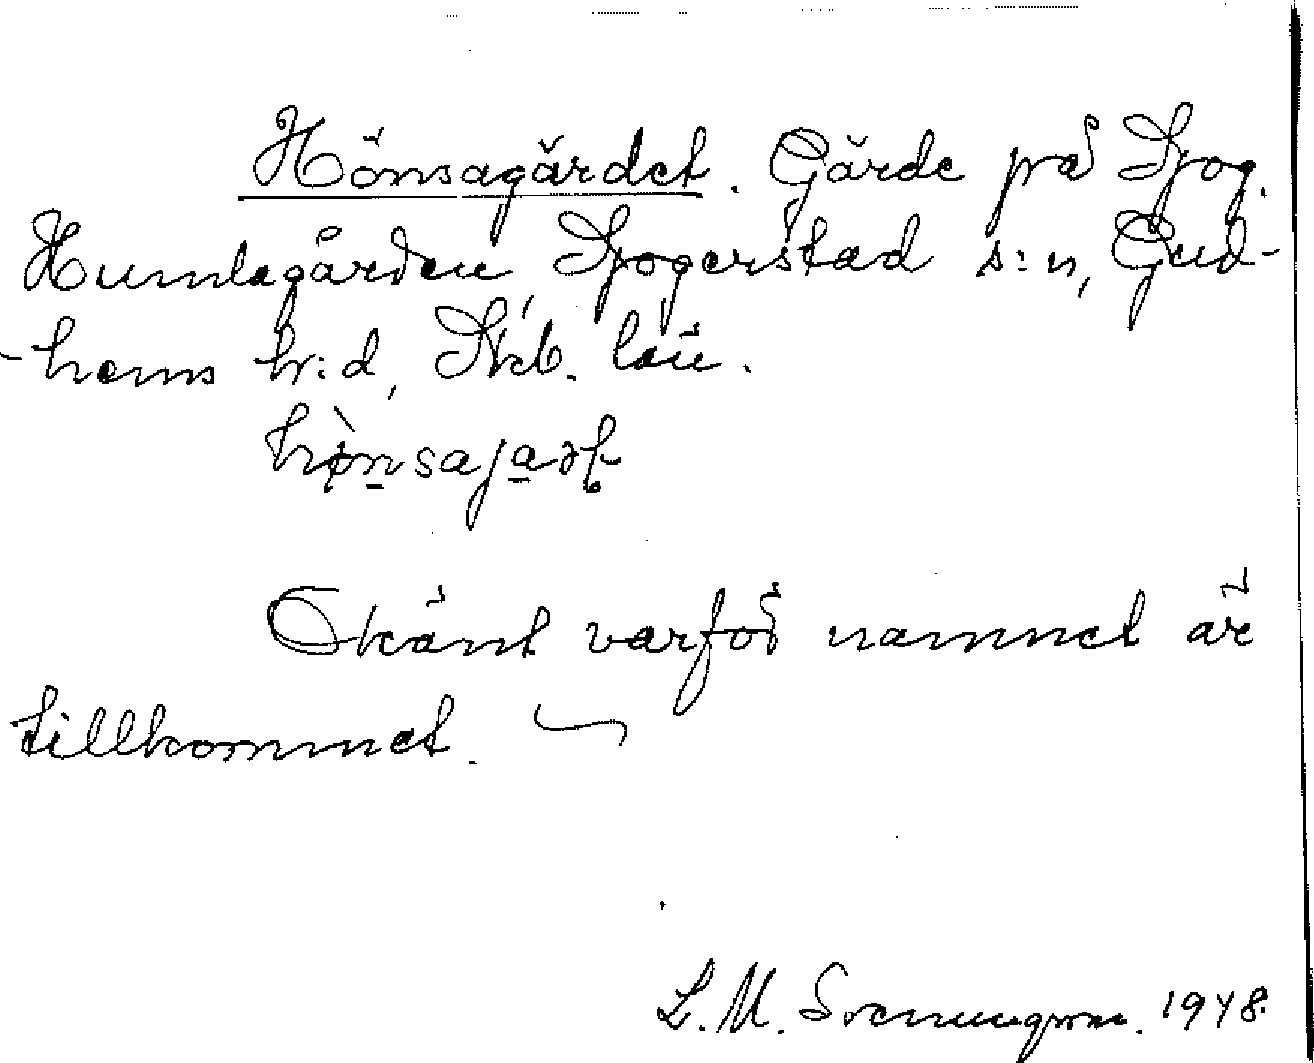 Hönsagärdet. Gärde på Sjog.
Humlagården, Sjogerstad s:n, Gud-
-hems hr:d, Skb. län.
hø̀nsajaḍɩ
Okänt varför namnet är
tillkommet.
L. M. Svenungsson. 1948.